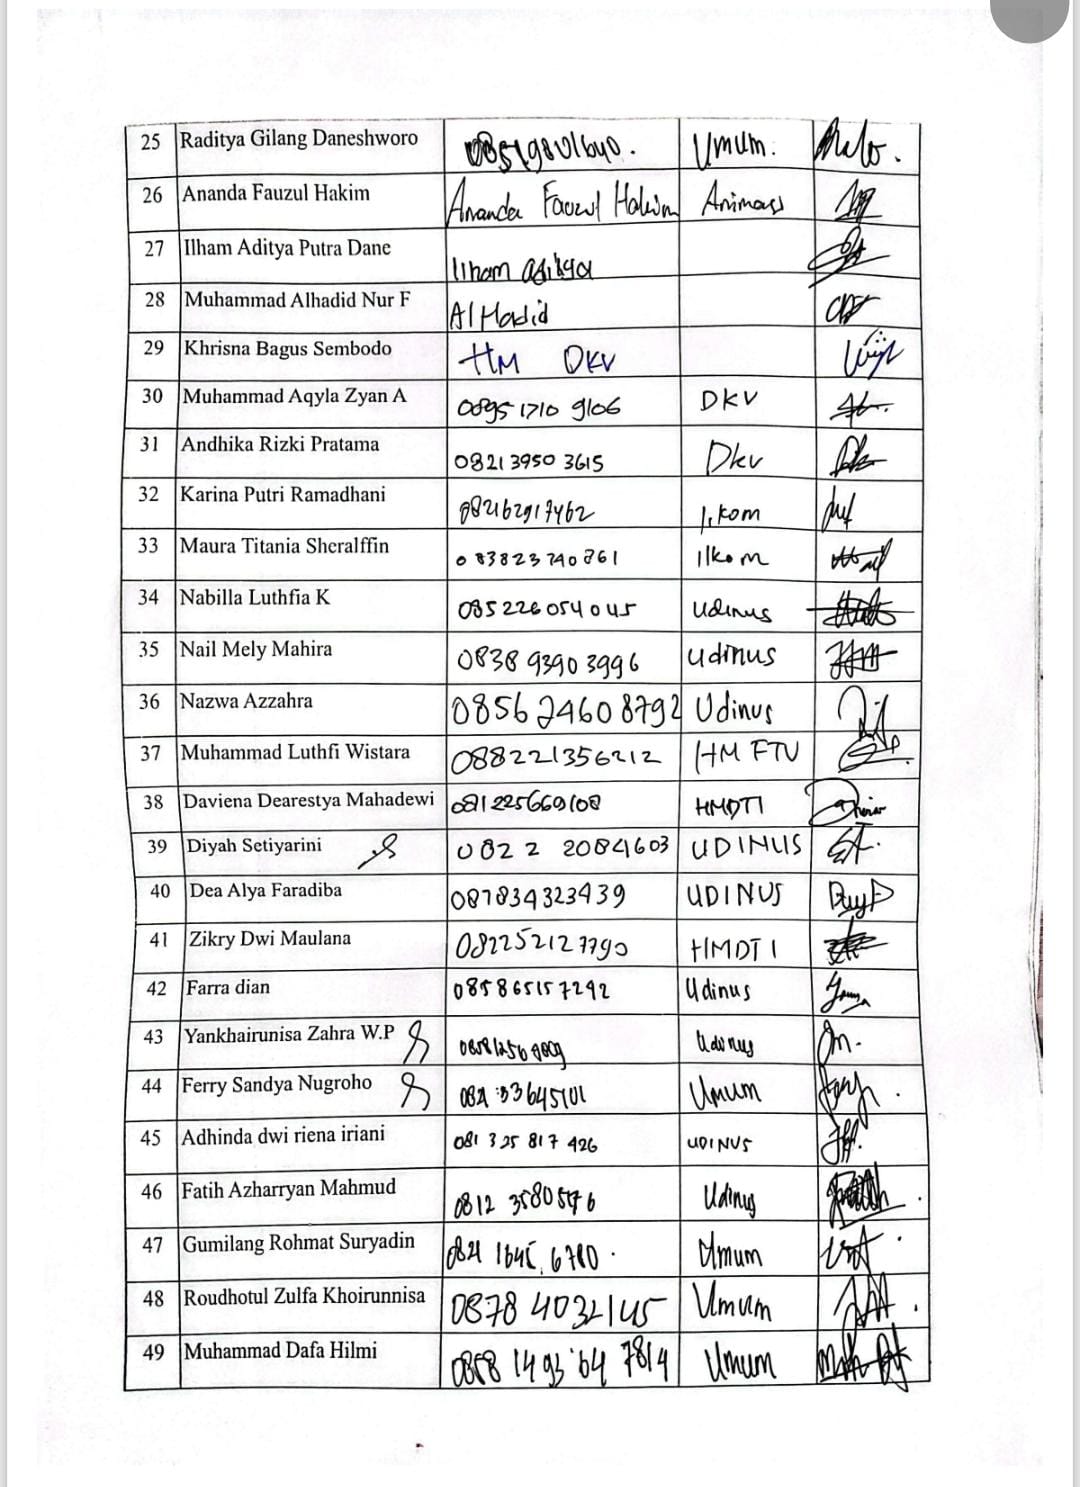 25 Raditya Gilang Daneshworo Umum.
26 Ananda Fauzul Hakim Ananda Fauzul Hakim Animasi
27 Ilham Aditya Putra Dane Ilham aditya
28 Muhammad Alhadid Nur F Al Hadid
29 Khrisna Bagus Sembodo HM DKV
30 Muhammad Aqyla Zyan A 0895 1710 9106 DKV
31 Andhika Rizki Pratama 0821 3950 3615 Dkv
32 Karina Putri Ramadhani 082162917462 Ilkom
33 Maura Titania Sheralffin 083823740861 Ilkom
34 Nabilla Luthfia K 085226054045 Udinus
35 Nail Mely Mahira 0838 9390 3996 Udinus
36 Nazwa Azzahra 0856 24608792 Udinus
37 Muhammad Luthfi Wistara 088221356212 HM FTV
38 Daviena Dearestya Mahadewi 081225669108 HMDTI
39 Diyah Setiyarini 0822 2084603 UDINUS
40 Dea Alya Faradiba 087834323439 UDINUS
41 Zikry Dwi Maulana 082252127790 HMDTI
42 Farra dian 085865157292 Udinus
43 Yankhairunisa Zahra W.P Udinus
44 Ferry Sandya Nugroho Umum
45 Adhinda dwi riena iriani 081 325 817 426 UDINUS
46 Fatih Azharryan Mahmud Udinus
47 Gumilang Rohmat Suryadin Umum
48 Roudhotul Zulfa Khoirunnisa 0878 4032145 Umum
49 Muhammad Dafa Hilmi 0858 1493 64 7814 Umum